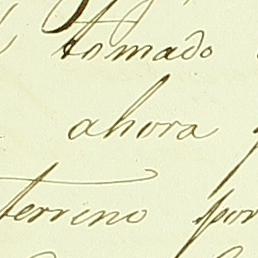 tomado
ahora
terreno por